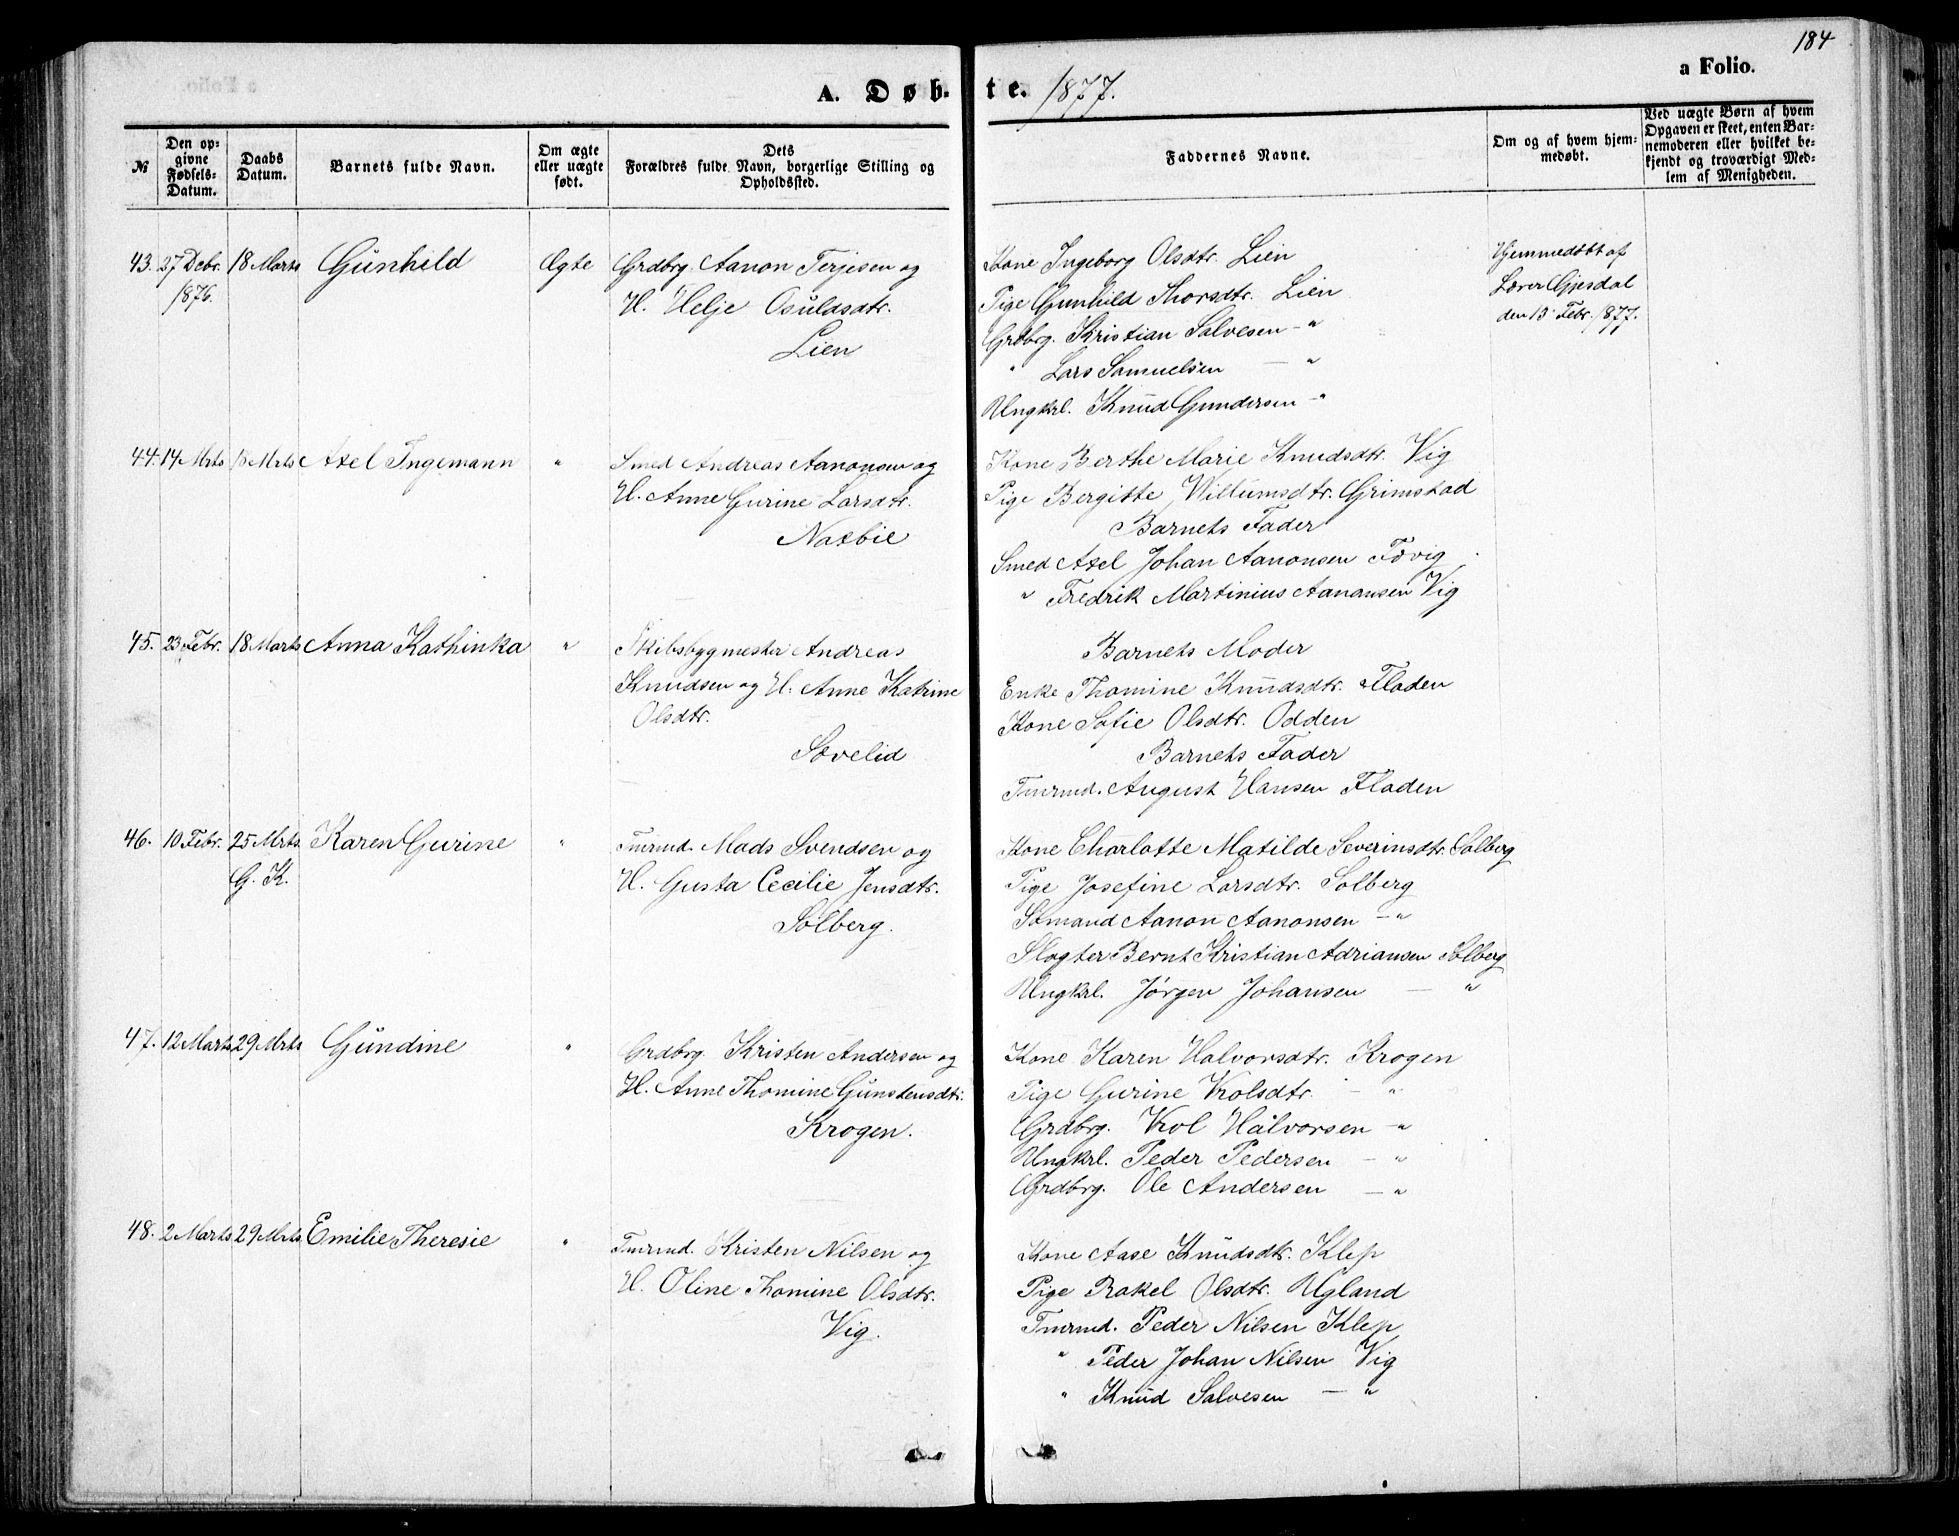 184
a Folio.
A. Døbte. 1877.
№
Den opgivne Fødsels-Datum.
Daabs Datum.
Barnets fulde Navn.
Om ægte eller uægte født.
Dets Forældres fulde Navn, borgerlige Stilling og Opholdssted.
Faddernes Navne.
Om og af hvem hjemmedøbt.
Ved uægte Børn af hvem Opgaven er skeet, enten Barnemoderen eller hvilket bekjendt og troværdigt Medlem af Menigheden.
43. 27 Debr. 18 Marts Gunhild Ægte Grdbrg. Aanon Terjesen og
1876. H. Helje Osuldsdtr.
Lien
Kone Ingeborg Olsdtr. Lien
Pige Gunhild Thorsdtr. Lien
Grdbrg. Kristian Salvesen - "
" Lars Samuelsen — "
Ungkrl. Knud Gundersen - "
Hjemmedøbt af
Lærer Gjesdal
den 13 Febr. 1877.
44. 14 Mrts 18 Mrts Axel Ingemann " Smed Andreas Aanonsen og
H. Anne Gurine Larsdtr.
Naxbie
Kone Berthe Marie Knudsdtr. Vig
Pige Bergitte Willumsdtr. Grimstad
Barnets Fader
Smed Axel Johan Aanonsen Fevig
" Fredrik Martinius Aanonsen Vig
45. 23 Febr. 18 Marts Anna Kathinka " Skibsbygmester Andreas
Knudsen og H. Anne Katrine
Olsdtr.
Sævelid
Barnets Moder
Enke Thomine Knudsdtr. Fladen
Kone Sofie Olsdtr. Odden
Barnets Fader
Tmrmd. August Hansen Fladen
46. 10 Febr. 25 Mrts. Karen Gurine " Tmrmd. Mads Svendsen og
G. K. H. Gusta Cecilie Jensdtr.
Solberg.
Kone Charlotte Matilde Severinsdtr. Solberg
Pige Josefine Larsdtr. Solberg
Sømand Aanon Aanonsen - "
Slagter Bernt Kristian Adriansen Solberg
Ungkrl. Jørgen Johansen — "
47. 12 Marts 29 Mrts Gundine " Grdbrg. Kristen Andersen og
H. Anne Thomine Gunstensdtr.
Krogen.
Kone Karen Halvorsdtr. Krogen
Pige Gurine Vrolsdtr. - "
Grdbrg. Vrol Halvorsen - "
Ungkrl. Peder Pedersen - "
Grdbrg. Ole Andersen - "
48. 2 Marts 29 Mrts. Emilie Theresie " Tmrmd. Kristen Nilsen og
H. Oline Thomine Olsdtr.
Vig.
Kone Aase Knudsdtr. Klep
Pige Rakel Olsdtr. Ugland
Tmrmd. Peder Nilsen Klep
" Peder Johan Nilsen Vig
" Knud Salvesen — "